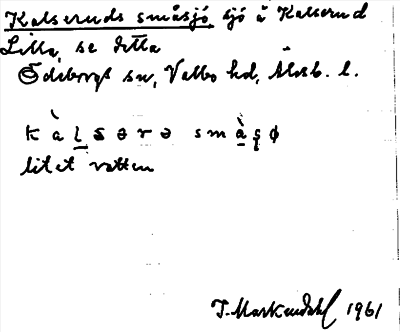 Kalseruds småsjö, sjö å Kalserud
Lilla, se detta
Ödeborgs sn, Valbo hd, Älvsb. l.
k à l s ə r ə s m å̀ ş ø
litet vatten
T. Markendahl 1961